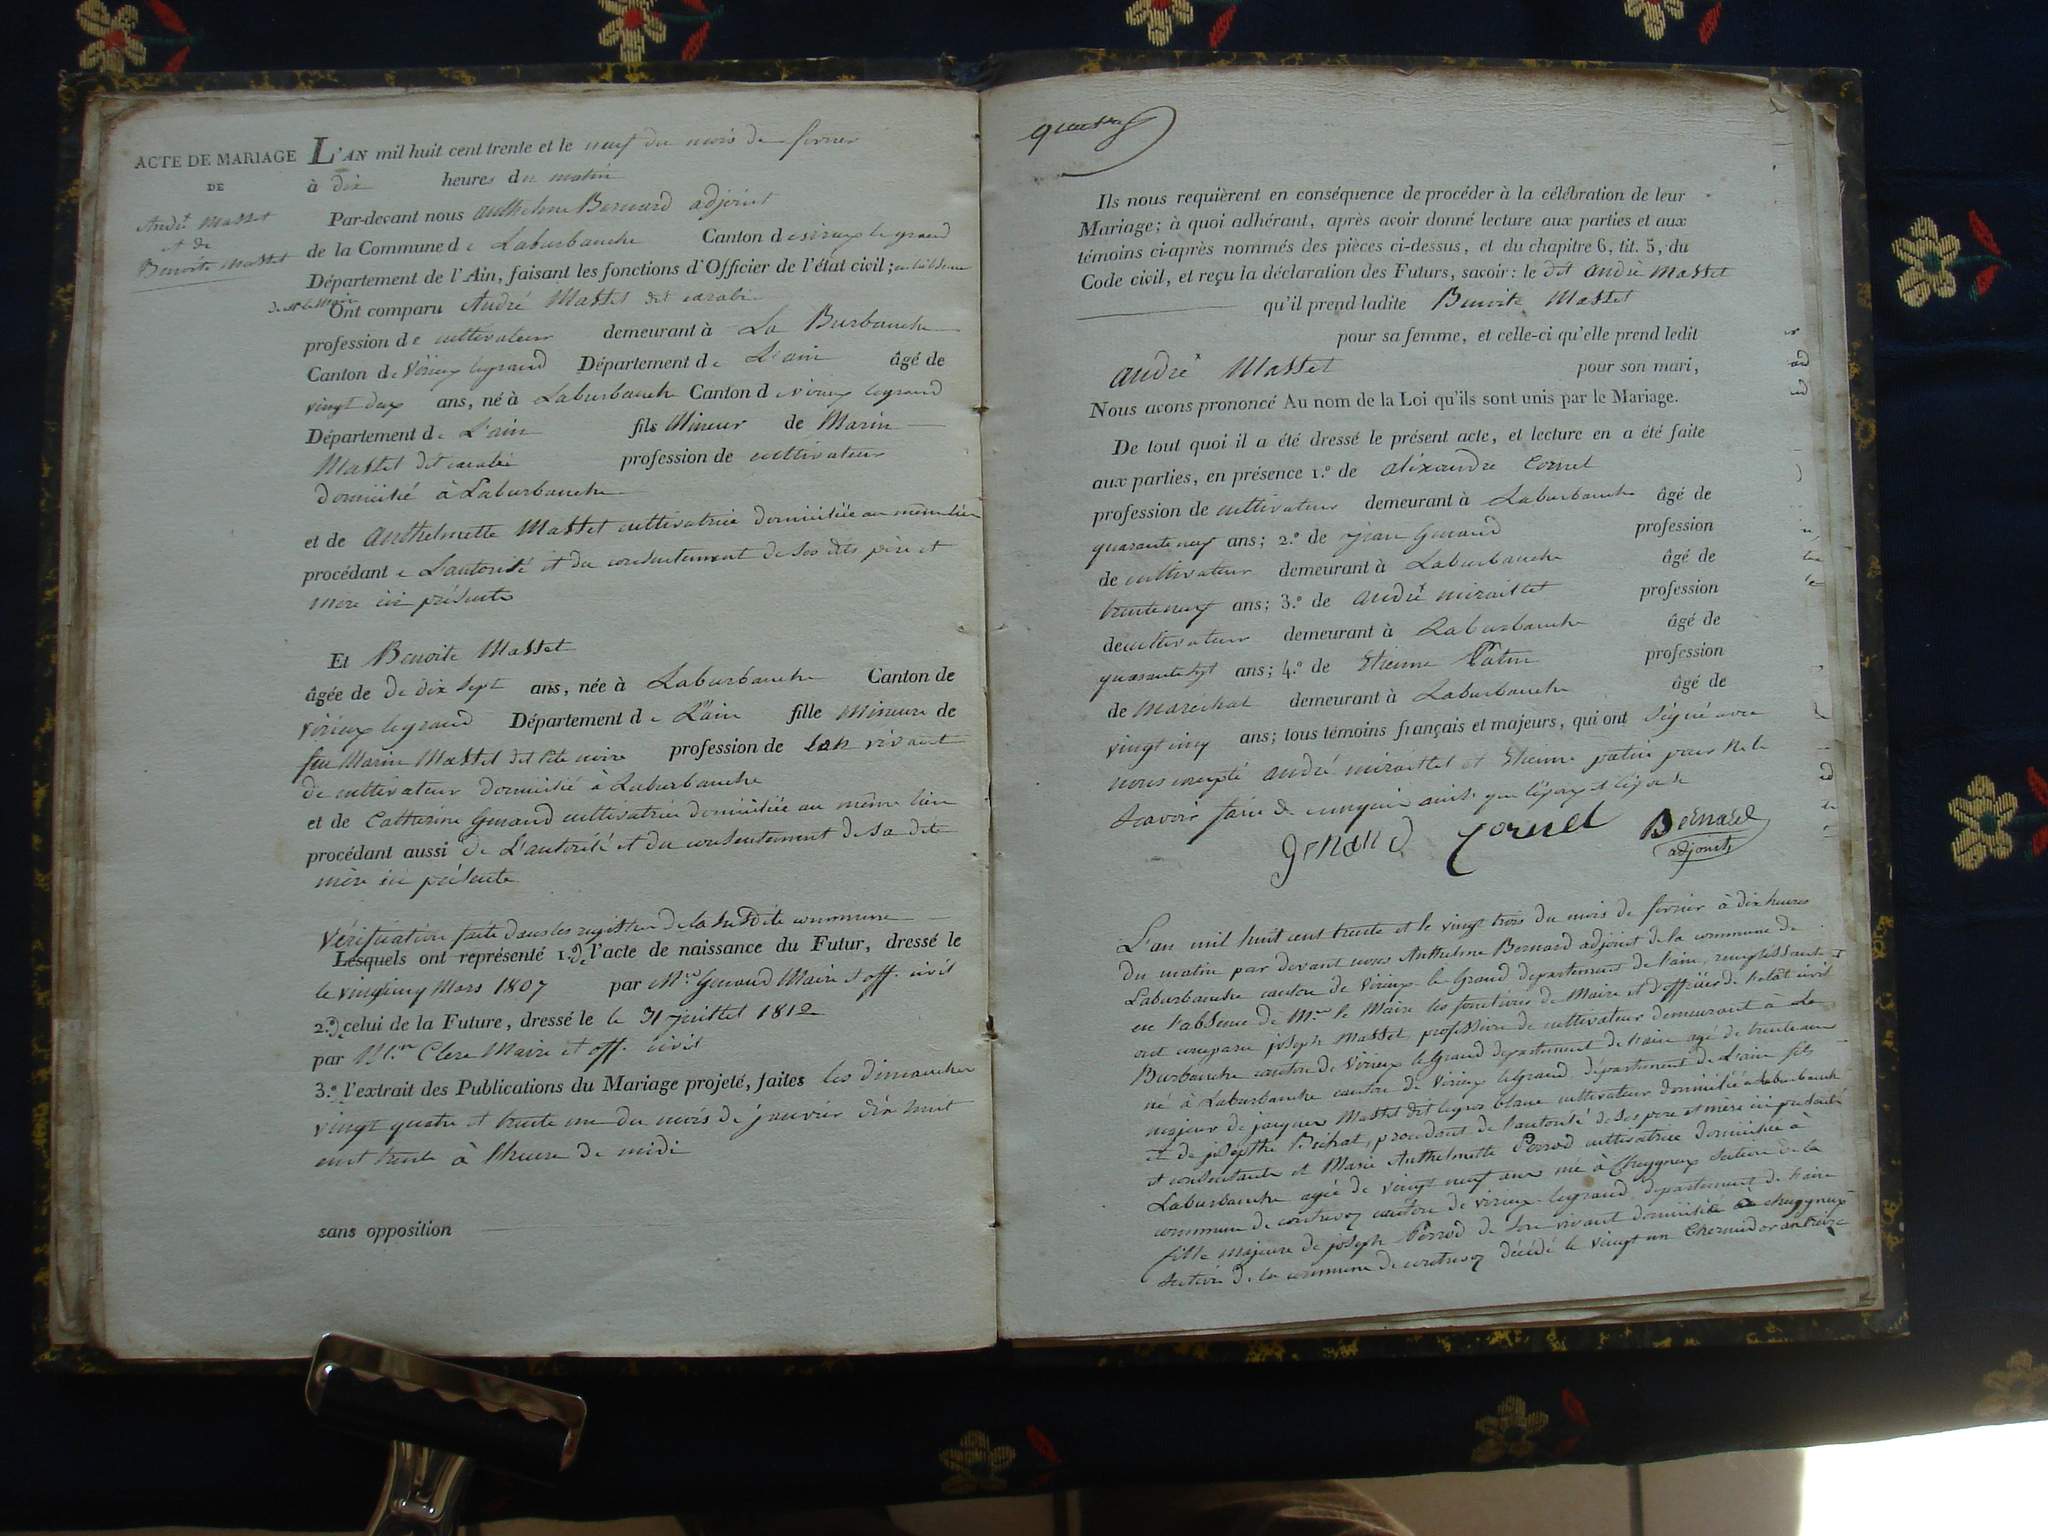 ACTE DE MARIAGE
DE
André Masset
et de
Benoite Masset
L'AN mil huit cent trente et le neuf du mois de fevrier
à dix heures du matin
Par-devant nous Anthelme Bernard adjoint
de la Commune de Laburbanche Canton de virieux le grand
Département de l'Ain, faisant les fonctions d'Officier de l'état civil; en l'absence
de Mr le Maire
Ont comparu André Masset dit carabi
profession de cultivateur demeurant à La Burbanche
Canton de Virieux legrand Département de L'ain âgé de
vingt deux ans, né à Laburbanche Canton de virieux legrand
Département de L'ain fils Mineur de Marin
Masset dit carabi profession de cultivateur
domicilié à Laburbanche
et de Anthelmette Masset cultivatrice domiciliée au même lieu
procédant de L'autorité et du consentement de ses dits père et
mere ici présents
Et Benoite Masset
âgée de de dix sept ans, née à Laburbanche Canton de
virieux legrand Département de L'ain fille Mineure de
feu Marin Masset dit tête noire profession de son vivant
de cultivateur domicilié à Laburbanche
et de Catherine Genand cultivatrice domiciliée au même lieu
procédant aussi de L'autorité et du consentement de sa dite
mère ici présente
Vérification faite dans les registres de la susdite commune
Lesquels ont représenté 1.º de l'acte de naissance du Futur, dressé le
le vingt cinq Mars 1807 par Mr. Genand Maire et off. civil
2.º de celui de la Future, dressé le le 31 juillet 1812
par Mr. Clere Maire et off. civil
3.º l'extrait des Publications du Mariage projeté, faites les dimanches
vingt quatre et trente un du mois de janvier dix huit
cent trente à l'heure de midi
sans opposition
Ils nous requièrent en conséquence de procéder à la célébration de leur
Mariage; à quoi adhérant, après avoir donné lecture aux parties et aux
témoins ci-après nommés des pièces ci-dessus, et du chapitre 6, tit. 5, du
Code civil, et reçu la déclaration des Futurs, savoir: le dit andré Masset
qu'il prend ladite Benoite Masset
pour sa femme, et celle-ci qu'elle prend ledit
andré Masset pour son mari,
Nous avons prononcé Au nom de la Loi qu'ils sont unis par le Mariage.
De tout quoi il a été dressé le présent acte, et lecture en a été faite
aux parties, en présence 1.º de alixandre Cornel
profession de cultivateur demeurant à Laburbanche âgé de
quarante neuf ans; 2.º de jean Genand profession
de cultivateur demeurant à Laburbanche âgé de
trente neuf ans; 3.º de andré miraillet profession
de cultivateur demeurant à Laburbanche âgé de
quarante sept ans; 4.º de Etienne Patin profession
de Marechal demeurant à Laburbanche âgé de
vingt cinq ans; tous témoins français et majeurs, qui ont signé avec
nous excepté andré miraillet et Etienne patin pour ne le
scavoir faire de enquis ainsi que l'époux et l'épouse
Genand Cornel Bernard
adjoint
L'an mil huit cent trente et le vingt trois du mois de fevrier à dix heures
du matin par devant nous Anthelme Bernard adjoint de la commune de
Laburbanche canton de Virieux-le-Grand departement de l'ain, remplissant
en l'absence de Mr. le Maire les fonctions de Maire et d'officier de l'état civil
ont comparu joseph Masset profession de cultivateur demeurant à La
Burbanche canton de Virieux le Grand departement de l'ain agé de trente ans
né à Laburbanche canton de Virieux legrand département de L'ain fils
majeur de jacques Masset dit legros blanc cultivateur domicilié à Laburbanche
et de josepthe procedant de l'autorité de ses pere et mère ici présents
et consentants et Marie Anthelmette Perrod cultivatrice domiciliée à
Laburbanche agée de vingt neuf ans né à Cheygneux section de la
commune de contrevoz canton de virieux-legrand departement de l'ain
fille majeure de joseph Perrod de son vivant domicilié à cheygneux
section de la commune de contrevoz décédé le vingt un thermidor an treize